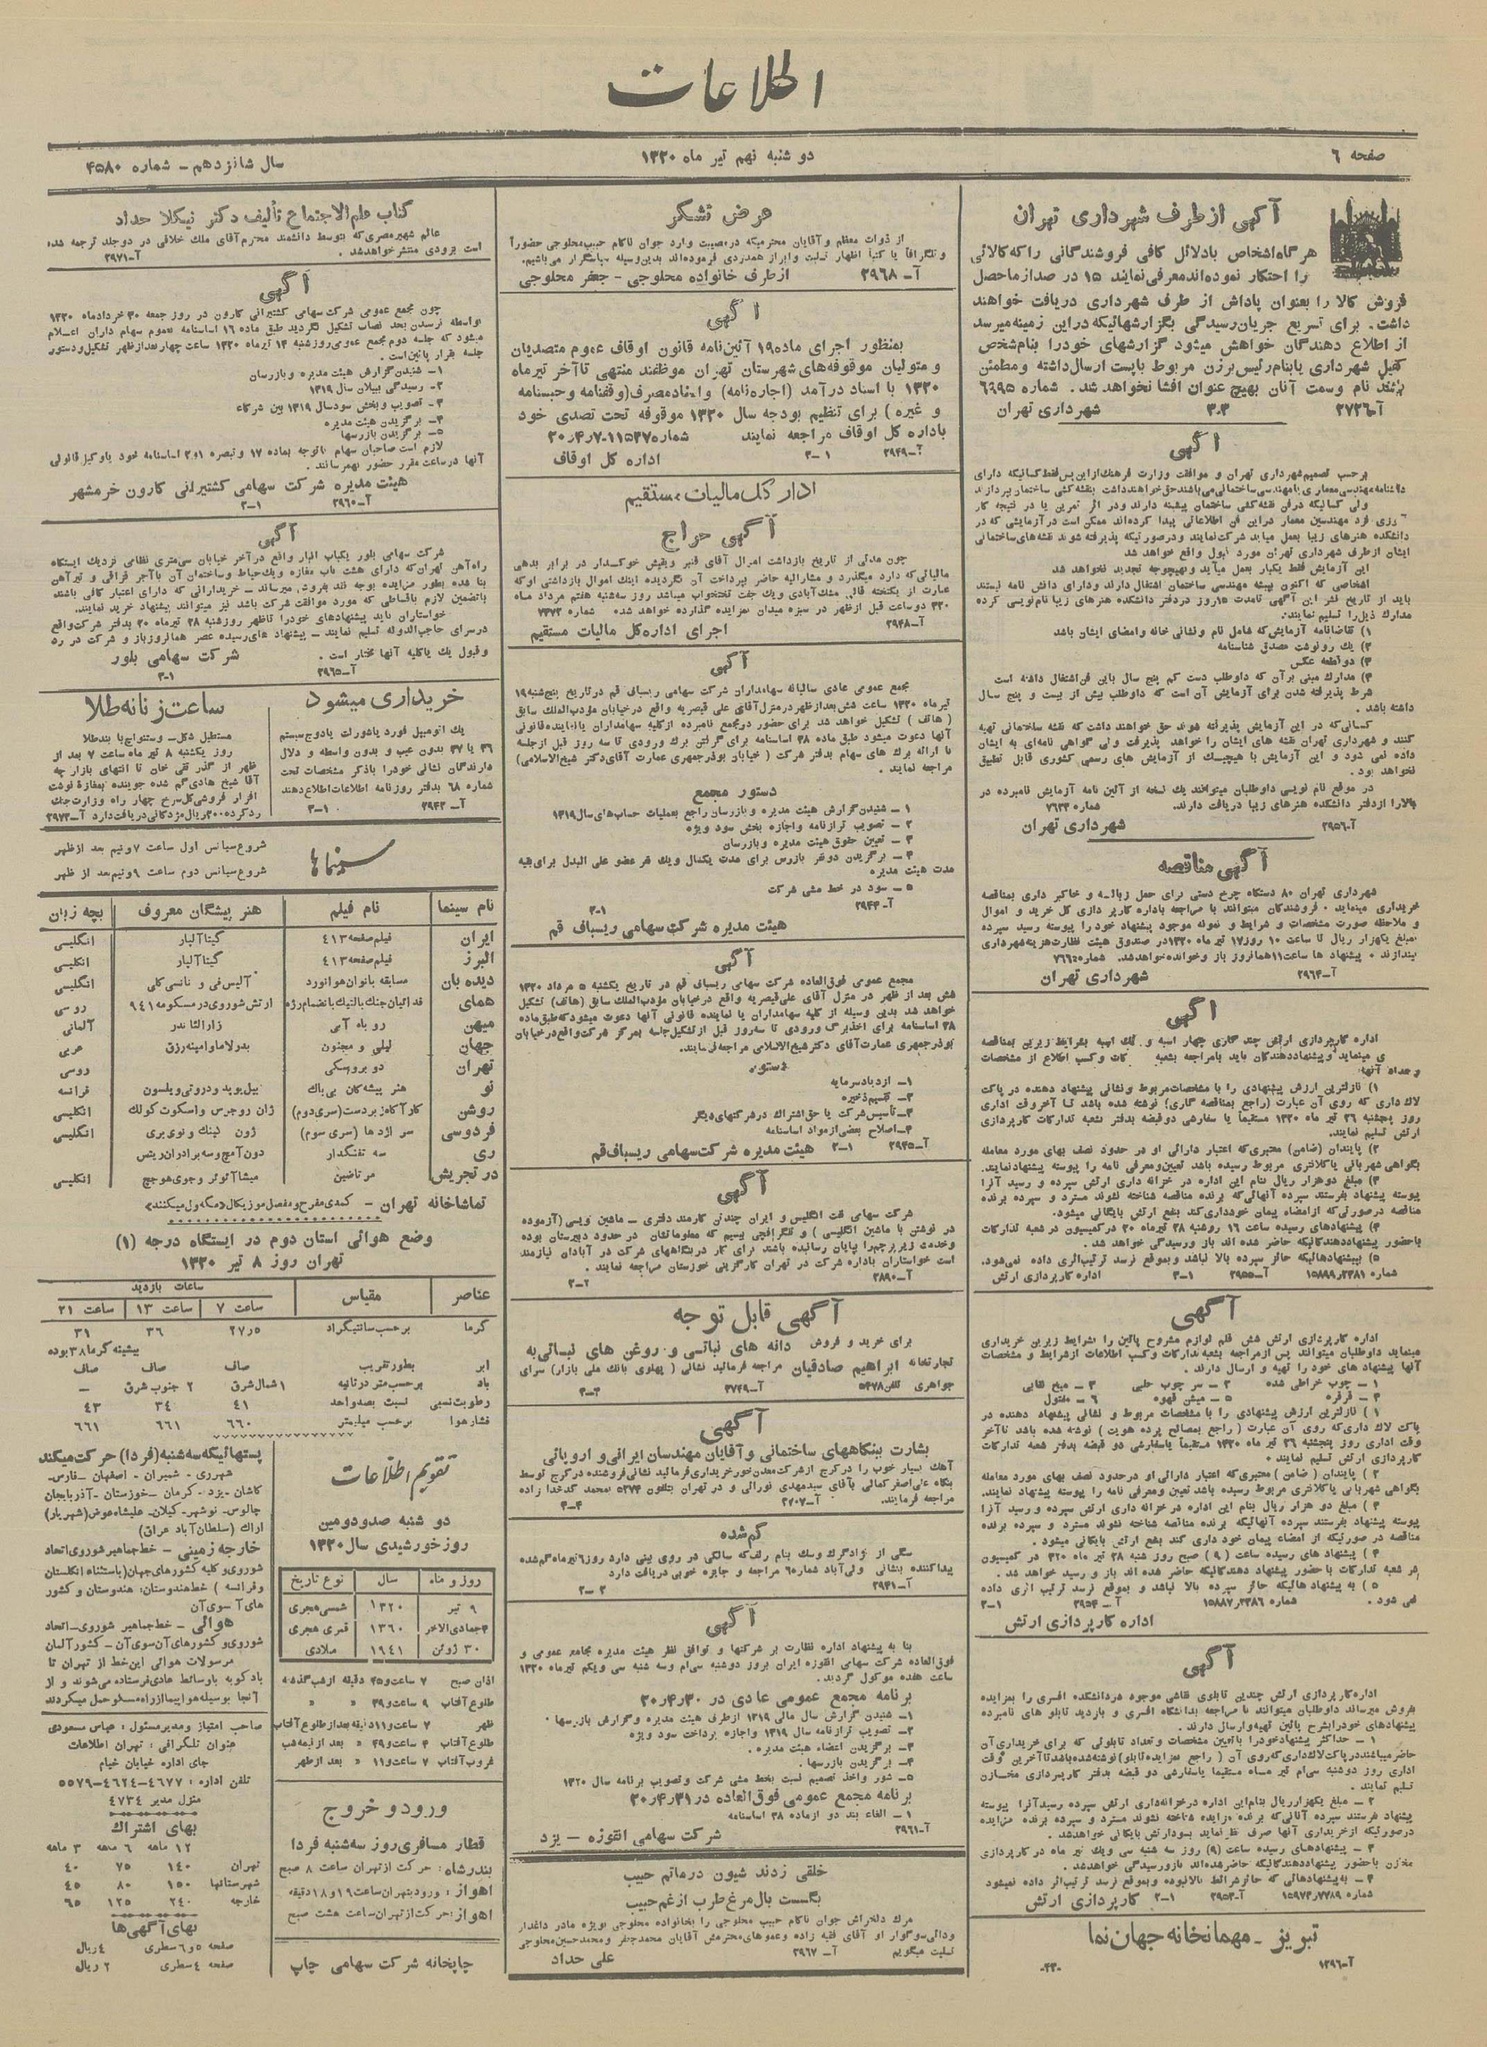 اطلاعات
صفحه ۶
دو شنبه نهم تیر ماه ۱۳۲۰
سال شانزدهم – شماره ۴۵۸۰
آگهی از طرف شهرداری تهران
هر گاه اشخاص با دلائل کافی فروشندگانی را که کالائی
را احتکار نموده‌اند معرفی نمایند ۱۵ در صد از ما حصل
فروش کالا را بعنوان پاداش از طرف شهرداری دریافت خواهند
داشت. برای تسریع جریان رسیدگی بگزارشهائیکه در این زمینه میرسد
از اطلاع دهندگان خواهش میشود گزارشهای خود را بنام شخص
کفیل شهرداری یا بنام رئیس برزن مربوط با پست ارسال داشته و مطمئن
باشند نام و سمت آنان بهیچ عنوان افشا نخواهد شد. شماره ۶۶۹۵
آ–۲۷۲۶ ۳-۳ شهرداری تهران
آگهی
بر حسب تصمیم شهرداری تهران و موافقت وزارت فرهنگ از این پس فقط کسانیکه دارای
دانشنامه مهندسی معماری یا مهندسی ساختمانی می‌باشند حق خواهند داشت بنقشه کشی ساختمان بپردازند
ولی کسانیکه در فن نقشه کشی ساختمان پیشینه دارند و در اثر تمرین یا در نتیجه کار
روزی نزد مهندسین معمار در این فن اطلاعاتی پیدا کرده‌اند ممکن است در آزمایشی که در
دانشکده هنرهای زیبا بعمل میاید شرکت نمایند و در صورتیکه پذیرفته شوند نقشه‌های ساختمانی
ایشان از طرف شهرداری تهران مورد قبول واقع خواهد شد
این آزمایش فقط یکبار بعمل میآید و بهیچوجه تجدید نخواهد شد
اشخاصی که اکنون به پیشه مهندسی ساختمان اشتغال دارند و دارای دانش نامه نیستند
باید از تاریخ نشر این آگهی تا مدت ۱۵ روز در دفتر دانشکده هنرهای زیبا نام نویسی کرده
مدارک ذیل را تسلیم نمایند:
۱) تقاضانامه آزمایش که شامل نام و نشانی خانه و امضای ایشان باشد
۲) یک رونوشت مصدق شناسنامه
۳) دو قطعه عکس
۴) مدارک مبنی بر آن که داوطلب دست کم پنج سال باین فن اشتغال داشته است
شرط پذیرفته شدن برای آزمایش آن است که داوطلب بیش از بیست و پنج سال
داشته باشد .
کسانی که در این آزمایش پذیرفته شوند حق خواهند داشت که نقشه ساختمانی تهیه
کنند و شهرداری تهران نقشه های ایشان را خواهد پذیرفت ولی گواهی نامه‌ای به ایشان
داده نمی شود و این آزمایش با هیچیک از آزمایش های رسمی کشوری قابل تطبیق
نخواهد بود .
در موقع نام نویسی داوطلبان میتوانند یک نسخه از آئین نامه آزمایش نامبرده در
بالا را از دفتر دانشکده هنرهای زیبا دریافت دارند. شماره ۷۶۳۳
آ–۲۹۵۶ شهرداری تهران
آگهی مناقصه
شهرداری تهران ۸۰ دستگاه چرخ دستی برای حمل زباله و خاکبر داری بمناقصه
خریداری مینماید . فروشندگان میتوانند با مراجعه باداره کارپردازی کل خرید و اموال
و ملاحظه صورت مشخصات و شرایط و نمونه موجود پیشنهاد خود را پیوسته رسید سپرده
مبلغ یکهزار ریال تا ساعت ۱۰ روز ۱۷ تیر ماه ۱۳۲۰ در صندوق هیئت نظارت هزینه شهرداری
بیندازند . پیشنهاد ها ساعت ۱۱ همانروز باز و خوانده خواهد شد. شماره ۷۶۶۵
آ–۲۹۶۴ شهرداری تهران
آگهی
اداره کارپردازی ارتش چند گاری چهار اسبه و تک اسبه بشرایط زیرین بمناقصه
مینماید و پیشنهاد دهندگان باید با مراجعه بشعبه کات و کسب اطلاع از مشخصات
۱) نازلترین ارزش پیشنهادی را با مشخصات مربوط و نشانی پیشنهاد دهنده در پاکت
لاک داری که روی آن عبارت (راجع بمناقصه گاری) نوشته شده باشد تا آخر وقت اداری
روز پنجشنبه ۲۶ تیر ماه ۱۳۲۰ مستقیماً یا سفارشی دو قبضه بدفتر شعبه تدارکات کارپردازی
ارتش تسلیم نمایند.
۲) پایندان (ضامن) معتبری که اعتبار دارائی او در حدود نصف بهای مورد معامله
بگواهی شهربانی یا کلانتری مربوط رسیده باشد تعیین و معرفی نامه را پیوسته پیشنهاد نمایند.
۳) مبلغ دو هزار ریال بنام این اداره در خزانه داری ارتش سپرده و رسید آنرا
پیوسته پیشنهاد بفرستند سپرده آنهائی که برنده مناقصه شناخته نشوند مسترد و سپرده برنده
مناقصه در صورتی که از امضاء پیمان خودداری کند بنفع ارتش بایگانی میشود.
۴) پیشنهادهای رسیده ساعت ۱۶ روز شنبه ۲۸ تیر ماه ۲۰ در کمیسیون در شعبه تدارکات
با حضور پیشنهاد دهندگانیکه حاضر شده اند باز و رسیدگی خواهد شد .
۵) به پیشنهادهائیکه حائز سپرده بالا نباشد و بموقع نرسد ترتیب اثری داده نمی‌شود.
شماره ۱۵۸۹۹٫۲۳۸۱ آ–۲۹۵۵ ۱–۳ اداره کارپردازی ارتش
آگهی
اداره کارپردازی ارتش شش قلم لوازم مشروح پائین را بشرایط زیرین خریداری
مینماید داوطلبان میتوانند پس از مراجعه بشعبه تدارکات و کسب اطلاعات از شرایط و مشخصات
آنها پیشنهاد های خود را تهیه و ارسال دارند .
۱ – چوب خراطی شده ۲ – سر چوب حلبی ۳ – میخ نقابی
۴ – قرقره ۵ – میشن قهوه ۶ – مفتول
۱) نازلترین ارزش پیشنهادی را با مشخصات مربوط و نشانی پیشنهاد دهنده در
پاکت لاک داری که روی آن عبارت ( راجع بمصالح پرده هویت) نوشته شده باشد تا آخر
وقت اداری روز پنجشنبه ۲۶ تیر ماه ۱۳۲۰ مستقیماً یا سفارشی دو قبضه بدفتر شعبه تدارکات
کارپردازی ارتش تسلیم نمایند .
۲ ) پایندان ( ضامن ) معتبری که اعتبار دارائی او در حدود نصف بهای مورد معامله
بگواهی شهربانی یا کلانتری مربوط رسیده باشد تعیین و معرفی نامه را پیوسته پیشنهاد نمایند.
۳ ) مبلغ دو هزار ریال بنام این اداره در خزانه داری ارتش سپرده و رسید آنرا
پیوسته پیشنهاد بفرستند سپرده آنهائیکه برنده مناقصه شناخته نشوند مسترد و سپرده برنده
مناقصه در صورتیکه از امضاء پیمان خود داری کند بنفع ارتش بایگانی میشود .
۴ ) پیشنهاد های رسیده ساعت ( ۹ ) صبح روز شنبه ۲۸ تیر ماه ۳۲۰ در کمیسیون
در شعبه تدارکات با حضور پیشنهاد دهندگانیکه حاضر شده اند باز و رسید خواهد شد .
۵ ) به پیشنهاد هائیکه حائز سپرده بالا نباشد و بموقع نرسد ترتیب اثری داده
نمی شود . شماره ۱۵۸۸۷٫۲۳۸۶ آ–۲۹۵۴ ۱–۳
اداره کارپردازی ارتش
آگهی
اداره کارپردازی ارتش چندین تابلوی نقاشی موجود در دانشکده افسری را بمزایده
بفروش میرساند داوطلبان میتوانند با مراجعه بدانشگاه افسری و بازدید تابلو های نامبرده
پیشنهادهای خود را بشرح پائین تهیه و ارسال دارند.
۱ – حداکثر پیشنهاد خود را با تعیین مشخصات و تعداد تابلوئی که برای خریداری آن
حاضر میباشند در پاکت لاک داری که روی آن ( راجع بمزایده تابلو) نوشته شده باشد تا آخرین وقت
اداری روز دوشنبه سی‌ام تیر ماه مستقیماً یا سفارشی دو قبضه بدفتر کارپردازی مخازن
تسلیم نمایند .
۲ – مبلغ یکهزار ریال بنام این اداره در خزانه‌داری ارتش سپرده رسید آنرا پیوسته
پیشنهاد بفرستند سپرده آنانی که برنده مزایده شناخته نشوند مسترد و سپرده برنده مزایده
در صورتیکه از خریداری آنها صرف نظر نماید بسود ارتش بایگانی خواهد شد.
۳ – پیشنهادهای رسیده ساعت (۹) روز سه شنبه سی و یک تیر ماه در کارپردازی
مخازن با حضور پیشنهاد دهندگانیکه حاضر شده‌اند باز و رسیدگی خواهد شد.
۴ – به پیشنهادهائی که حائز شرائط بالا نبوده و بموقع نرسد ترتیب اثر داده نمیشود
شماره ۱۵۹۷۴٫۷۷۸۹ آ–۲۹۵۳ ۱–۲ کارپردازی ارتش
تبریز – مهمانخانه جهان نما
آ–۱۲۹۶ ۲۲–
عرض تشکر
از ذوات معظم و آقایان محترمیکه در مصیبت وارد جوان ناکام حبیب محلوجی حضوراً
و تلگرافاً یا کتباً اظهار تسلیت و ابراز همدردی فرموده‌اند بدین وسیله سپاسگزار می‌باشیم.
آ–۲۹۶۸ از طرف خانواده محلوجی – جعفر محلوجی
آگهی
بمنظور اجرای ماده ۱۹ آئین نامه قانون اوقاف عموم متصدیان
و متولیان موقوفه‌های شهرستان تهران موظفند منتهی تا آخر تیر ماه
۱۳۲۰ با اسناد درآمد (اجاره نامه) و اسناد مصرف (وقفنامه و حبسنامه
و غیره ) برای تنظیم بودجه سال ۱۳۲۰ موقوفه تحت تصدی خود
باداره کل اوقاف مراجعه نمایند شماره ۱۱۵۳۷–۲۰٫۴٫۷
آ–۲۹۴۹ ۱–۳ اداره کل اوقاف
اداره کل مالیات مستقیم
آگهی حراج
چون مدتی از تاریخ بازداشت اموال آقای قنبر وبقیش خوکسدار در برابر بدهی
مالیاتی که دارد میگذرد و مشارالیه حاضر بپرداخت آن نگردیده اینک اموال بازداشتی او که
عبارت از یکتخته قالی مشک آبادی و یک جفت تختخواب میباشد روز سه شنبه هفتم مرداد ماه
۳۲۰ دو ساعت قبل از ظهر در سبزه میدان بمزایده گذارده خواهد شد . شماره ۷۳۷۲
آ–۲۹۴۸ اجرای اداره کل مالیات مستقیم
آگهی
مجمع عمومی عادی سالیانه سهامداران شرکت سهامی ریسباف قم در تاریخ پنج شنبه ۱۹
تیر ماه ۱۳۲۰ ساعت شش بعد از ظهر در منزل آقای علی قیصریه واقع در خیابان مؤدب الملک سابق
( هاتف ) تشکیل خواهد شد برای حضور در مجمع نامبرده از کلیه سهامداران یا نماینده قانونی
آنها دعوت میشود طبق ماده ۳۸ اساسنامه برای گرفتن برک ورودی تا سه روز قبل از جلسه
با ارائه برک های سهام بدفتر شرکت ( خیابان بوذرجمهری عمارت آقای دکتر شیخ الاسلامی)
مراجعه نمایند .
دستور مجمع
۱ – شنیدن گزارش هیئت مدیره و بازرسان راجع بعملیات حساب‌های سال ۱۳۱۹
۲ – تصویب ترازنامه و اجازه بخش سود ویژه
۳ – تعیین حقوق هیئت مدیره و بازرسان
۴ – برگزیدن دو نفر بازرس برای مدت یکسال و یک نفر عضو علی البدل برای بقیه
مدت هیئت مدیره
۵ – سود در خط مشی شرکت
آ–۲۹۴۴ ۱–۲
هیئت مدیره شرکت سهامی ریسباف قم
آگهی
مجمع عمومی فوق العاده شرکت سهامی ریسباف قم در تاریخ یکشنبه ۵ مرداد ۱۳۲۰
شش بعد از ظهر در منزل آقای علی قیصریه واقع در خیابان مؤدب الملک سابق (هاتف) تشکیل
خواهد شد بدین وسیله از کلیه سهامداران یا نماینده قانونی آنها دعوت میشود که طبق ماده
۳۸ اساسنامه برای اخذ برگ ورودی تا سه روز قبل از تشکیل جلسه بمرکز شرکت واقع در خیابان
بوذرجمهری عمارت آقای دکتر شیخ الاسلامی مراجعه فرمایند.
دستور
۱– ازدیاد سرمایه
۲– تقسیم ذخیره
۳– تأسیس شرکت یا حق اشتراک در شرکتهای دیگر
۴– اصلاح بعضی از مواد اساسنامه
آ–۲۹۴۵ ۱–۲ هیئت مدیره شرکت سهامی ریسباف قم
آگهی
شرکت سهامی نفت انگلیس و ایران چندتن کارمند دفتری – ماشین نویس (آزموده
در نوشتن با ماشین انگلیسی ) و تلگرافچی بیسیم که معلوماتشان در حدود دبیرستان بوده
و خدمت زیر پرچم را پایان رسانیده باشند برای کار در بنگاههای شرکت در آبادان نیازمند
است خواستاران باداره شرکت در تهران کارگزینی خوزستان مراجعه نمایند .
آ–۲۸۹۰ ۲–۲
آگهی قابل توجه
برای خرید و فروش دانه های نباتی و روغن های نباتی به
تجارتخانه ابراهیم صادقیان مراجعه فرمائید نشانی ( پهلوی بانک ملی بازار) سرای
جواهری تلفن ۵۴۷۸ آ–۲۷۴۹ ۳–۳
آگهی
بشارت ببنگاههای ساختمانی و آقایان مهندسان ایرانی و اروپائی
آهک بسیار خوب را در کرج از شرکت معدن خور خریداری فرمائید نشانی فروشنده در کرج توسط
بنگاه علی اصغر کمالی بآقای سید مهدی نورانی و در تهران بتلفون ۵۲۷۴ بمحمد کدخدا زاده
مراجعه فرمایند. آ–۲۷۰۷ ۴–۴
گم شده
سگی از نژاد گرگ و سگ بنام رلف که سالکی در روی بینی دارد روز ۶ تیر ماه گم شده
پیدا کننده بنشانی ولی آباد شماره ۶ مراجعه و جایزه خوبی دریافت دارد
آ–۲۹۴۱ ۲–۲
آگهی
بنا به پیشنهاد اداره نظارت بر شرکتها و توافق نظر هیئت مدیره مجامع عمومی و
فوق العاده شرکت سهامی انقوزه ایران بروز دوشنبه سی‌ام و سه شنبه سی و یکم تیر ماه ۱۳۲۰
ساعت هفده موکول گردید.
برنامه مجمع عمومی عادی در ۲۰٫۴٫۳۰
۱– شنیدن گزارش سال مالی ۱۳۱۹ از طرف هیئت مدیره و گزارش بازرسها .
۲– تصویب ترازنامه سال ۱۳۱۹ و اجازه پرداخت سود ویژه
۳– برگزیدن اعضاء هیئت مدیره .
۴– برگزیدن بازرسها .
۵– شور و اخذ تصمیم نسبت بخط مشی شرکت و تصویب برنامه سال ۱۳۲۰
برنامه مجمع عمومی فوق العاده در ۲۰٫۴٫۳۱
۱ – الغاء بند دو از ماده ۲۸ اساسنامه
آ–۲۹۶۱ شرکت سهامی انقوزه – یزد
خلقی زدند شیون در ماتم حبیب
بگسست بال مرغ طرب از غم حبیب
مرک دلخراش جوان ناکام حبیب محلوجی را بخانواده محلوجی بویژه مادر داغدار
و دائی سوگوار او آقای فقیه زاده و عموهای محترمش آقایان محمد جعفر و محمد حسین محلوجی
تسلیت میگویم آ–۲۹۶۷ علی حداد
کتاب علم الاجتماع تألیف دکتر نیکلا حداد
عالم شهیر مصری که بتوسط دانشمند محترم آقای ملک خلاقی در دو جلد ترجمه شده
است بزودی منتشر خواهد شد . آ–۲۹۷۱
آگهی
چون مجمع عمومی شرکت سهامی کشتیرانی کارون در روز جمعه ۳۰ خرداد ماه ۱۳۲۰
بواسطه نرسیدن بحد نصاب تشکیل نگردید طبق ماده ۱۶ اساسنامه بعموم سهام داران اعلام
میشود که جلسه دوم مجمع عمومی روز شنبه ۱۴ تیر ماه ۱۳۲۰ ساعت چهار بعد از ظهر تشکیل و دستور
جلسه بقرار پائین است .
۱– شنیدن گزارش هیئت مدیره و بازرسان
۲– رسیدگی ببیلان سال ۱۳۱۹
۳– تصویب و بخش سود سال ۱۳۱۹ بین شرکاء
۴– برگزیدن هیئت مدیره
۵– برگزیدن بازرسها
لازم است صاحبان سهام با توجه بماده ۱۷ و تبصره ۱ و ۲ اساسنامه خود یا وکیل قانونی
آنها در ساعت مقرر حضور بهمرسانند .
هیئت مدیره شرکت سهامی کشتیرانی کارون خرمشهر
آ–۲۹۶۰ ۱–۲
آگهی
شرکت سهامی بلور یکباب انبار واقع در آخر خیابان سی‌متری نظامی نزدیک ایستگاه
راه آهن تهران که دارای هشت باب مغازه و یک حیاط و ساختمان آن با آجر قزاقی و تیر آهن
بنا شده بطور مزایده بوجه نقد بفروش میرساند – خریدارانی که دارای اعتبار کافی باشند
با تضمین لازم باقساطی که مورد موافقت شرکت باشد نیز میتوانند پیشنهاد خرید نمایند.
خواستاران باید پیشنهادهای خود را تا ظهر روز شنبه ۲۸ تیر ماه ۲۰ بدفتر شرکت واقع
در سرای حاجب الدوله تسلیم نمایند – پیشنهادهای رسیده عصر همانروز باز و شرکت در رد
و قبول یک یا کلیه آنها مختار است .
آ–۲۹۶۵ ۱–۳ شرکت سهامی بلور
خریداری میشود
یک اتومبیل فورد یا شورلت یا دوج سیستم
۳۶ یا ۳۷ بدون عیب و بدون واسطه و دلال
دارندگان نشانی خود را با ذکر مشخصات تحت
شماره ۶۸ بدفتر روزنامه اطلاعات اطلاع دهند
آ–۲۹۴۲ ۱–۲
ساعت زنانه طلا
مستطیل شکل – وستنواچ با بند طلا
روز یکشنبه ۸ تیر ماه ساعت ۷ بعد از
ظهر از گذر تقی خان تا انتهای بازارچه
آقا شیخ هادی گم شده جوینده بمغازه نوشت
افزار فروشی گل سرخ چهار راه وزارت جنگ
رد کرده ۲۰۰ ریال مژدگانی دریافت دارد آ–۲۹۷۲
سینماها
شروع سیانس اول ساعت ۷ و نیم بعد از ظهر
شروع سیانس دوم ساعت ۹ و نیم بعد از ظهر
نام سینما نام فیلم هنر پیشگان معروف بچه زبان
ایران فیلم صفحه ۴۱۳ گیتا آلپار انگلیسی
البرز فیلم صفحه ۴۱۳ گیتا آلپار انگلیسی
دیده بان مسابقه بانوان هوانورد آلیس فی و نانسی کلی انگلیسی
همای فدائیان جنک بالتیک بانضمام رژه ارتش شوروی در مسکو مه ۹۴۱ روسی
میهن روباه آبی زارا لئاندر آلمانی
جهان لیلی و مجنون بدر لاما و امینه رزق عربی
تهران دوبروسکی روسی
نو هنر پیشه گان بی باک بیل بوید و دروتی ویلسون فرانسه
روشن کارآگاه زبردست (سری دوم) ژان روجرس و اسکوت کولک انگلیسی
فردوسی سر اژدها (سری سوم) ژون لینک و نوی بری انگلیسی
ری سه تفنگدار دون آمچ و سه برادران ریتس
در تجریش مرتاضین میشا آئوئر و جوی هوجچ انگلیسی
تماشاخانه تهران – کمدی مفرح و مفصل موزیکال «مگه ول میکنند»
وضع هوائی استان دوم در ایستگاه درجه (۱)
تهران روز ۸ تیر ۱۳۲۰
عناصر مقیاس ساعات بازدید
ساعت ۷ ساعت ۱۳ ساعت ۲۱
گرما برحسب سانتیگراد ۲۷٫۵ ۳۶ ۳۱
بیشینه گرما ۳۸ بوده
ابر بطور تقریب صاف صاف صاف
باد برحسب متر در ثانیه ۱ شمال شرق ۲ جنوب شرق –
رطوبت نسبی نسبت بصد واحد ۴۱ ۳۴ ۴۳
فشار هوا برحسب میلیمتر ۶۶۰ ۶۶۱ ۶۶۱
تقویم اطلاعات
دو شنبه صد و دومین
روز خورشیدی سال ۱۳۲۰
روز و ماه سال نوع تاریخ
۹ تیر ۱۳۲۰ شمسی هجری
۴ جمادی الاخر ۱۳۶۰ قمری هجری
۳۰ ژوئن ۱۹۴۱ میلادی
اذان صبح ۷ ساعت و ۴۵ دقیقه از شب گذشته
طلوع آفتاب ۹ ساعت و ۳۹ » »
ظهر ۷ ساعت و ۱۱ دقیقه بعد از طلوع آفتاب
طلوع آفتاب ۴ ساعت و ۴۹ » بعد از نیمه شب
غروب آفتاب ۷ ساعت و ۱۱ » بعد از ظهر
ورود و خروج
قطار مسافری روز سه شنبه فردا
بندرشاه: حرکت از تهران ساعت ۸ صبح
اهواز : ورود بتهران ساعت ۱۹ و ۱۸ دقیقه
اهواز : حرکت از تهران ساعت هشت صبح
چاپخانه شرکت سهامی چاپ
پستهائیکه سه شنبه (فردا) حرکت میکند
شهرری – شمیران – اصفهان – فارس –
کاشان – یزد – کرمان – خوزستان – آذربایجان
چالوس – نوشهر – گیلان – علیشاه عوض (شهریار)
اراک (سلطان آباد عراق)
خارجه زمینی – خط جماهیر شوروی اتحاد
شوروی و کلیه کشورهای جهان (باستثناء انگلستان
و فرانسه ) خط هندوستان: هندوستان و کشور
های آنسوی آن
هوائی – خط جماهیر شوروی – اتحاد
شوروی و کشورهای آن سوی آن – کشور آلمان
مرسولات هوائی این خط از تهران تا
بادکوبه با وسائط عادی فرستاده می‌شوند و از
آنجا بوسیله هواپیما از راه مسکو حمل میگردند
صاحب امتیاز و مدیر مسئول : عباس مسعودی
عنوان تلگرافی : تهران اطلاعات
جای اداره خیابان خیام
تلفن اداره : ۴۶۷۷–۴۶۲۴–۵۵۷۹
منزل مدیر ۴۷۳۴
بهای اشتراک
۱۲ ماهه ۶ ماهه ۳ ماهه
تهران ۱۴۰ ۷۵ ۴۰
شهرستانها ۱۵۰ ۸۰ ۴۵
خارجه ۲۴۰ ۱۲۵ ۶۵
بهای آگهی‌ها
صفحه ۵ و ۶ سطری ۴ ریال
صفحه ۴ سطری ۲ ریال